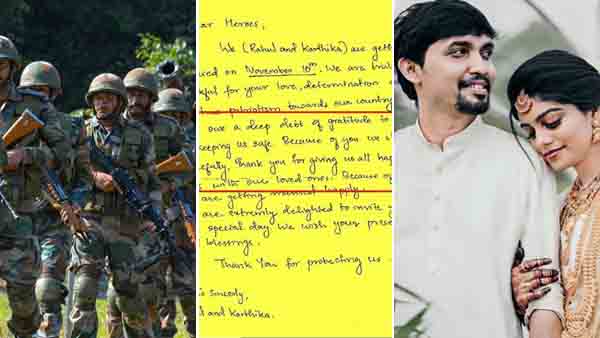 ar Heroes,
We (Rahul and Karthika) are gett
on November 10th. We are trul
kful for your love, determination
patriotism towards our country
owe a deep debt of gratitude fo
eeping us safe. Because of you we
efully. Thank you for giving us all hap
with our loved ones. Because of
are getting married happily.
are extremly delighted to invite y
special day. We wish your prese
blessings.
Thank You for protecting us.
s sincely,
l and Karthika.